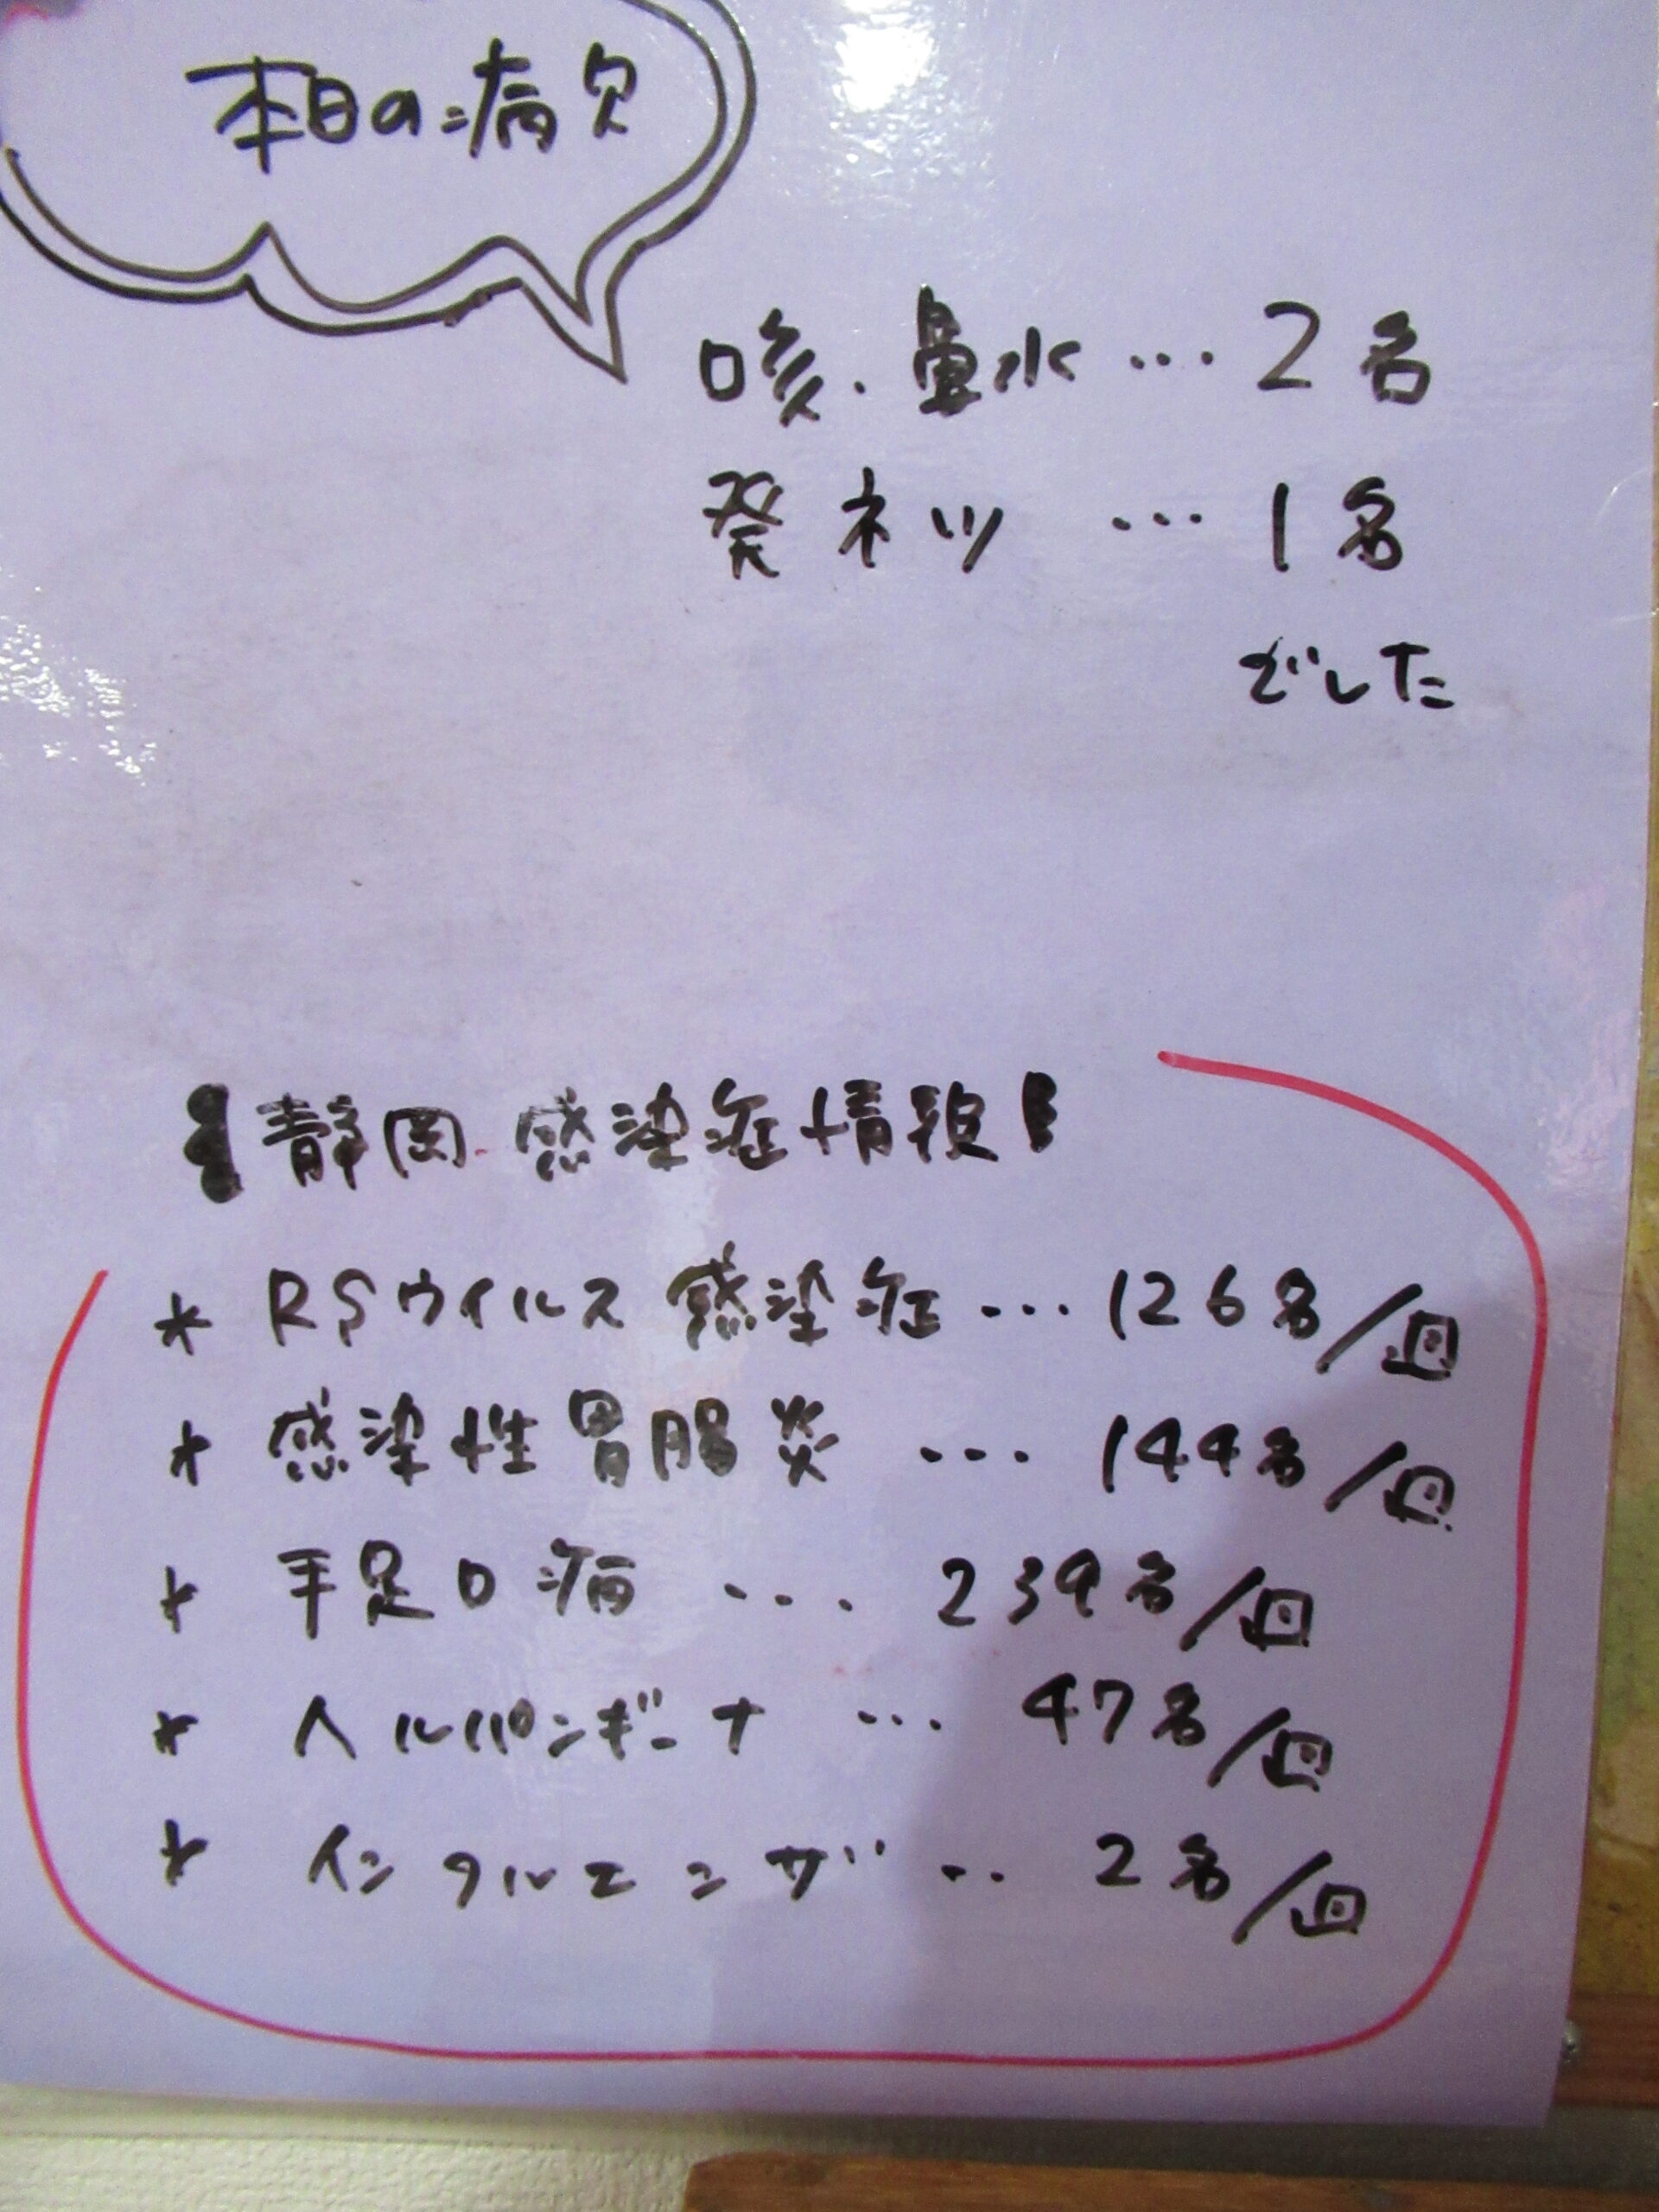 本日の病欠
咳・鼻水…2名
発ネツ…1名
でした
静岡 感染症情報
* RSウイルス感染症…126名/週
* 感染性胃腸炎…144名/週
* 手足口病…239名/週
* ヘルパンギーナ…47名/週
* インフルエンザ…2名/週